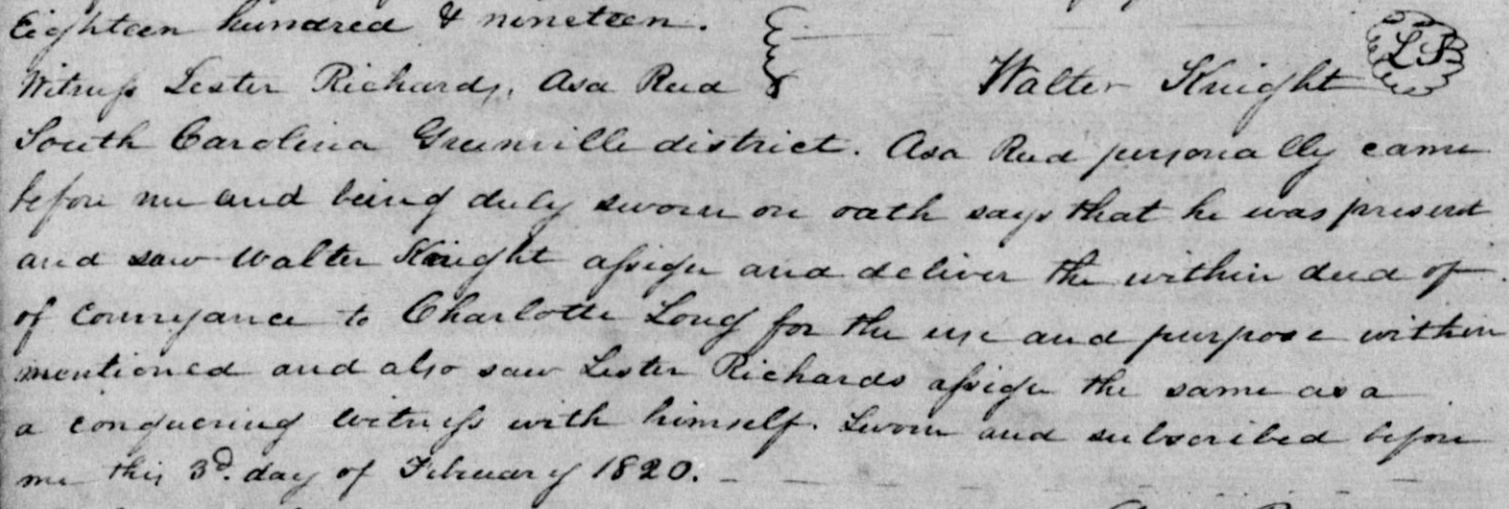 Eighteen hundred & nineteen.
Witness Lester Richards, Asa Reed Walter Knight LS
South Carolina Greenville district. Asa Reed personally came
before me and being duly sworn on oath says that he was present
and saw Walter Knight assign and deliver the within deed of
of Conveyance to Charlotte Long for the use and purpose within
mentioned and also saw Lester Richards assign the same as a
a conquering witness with himself. Sworn and subscribed before
me this 3d. day of February 1820.